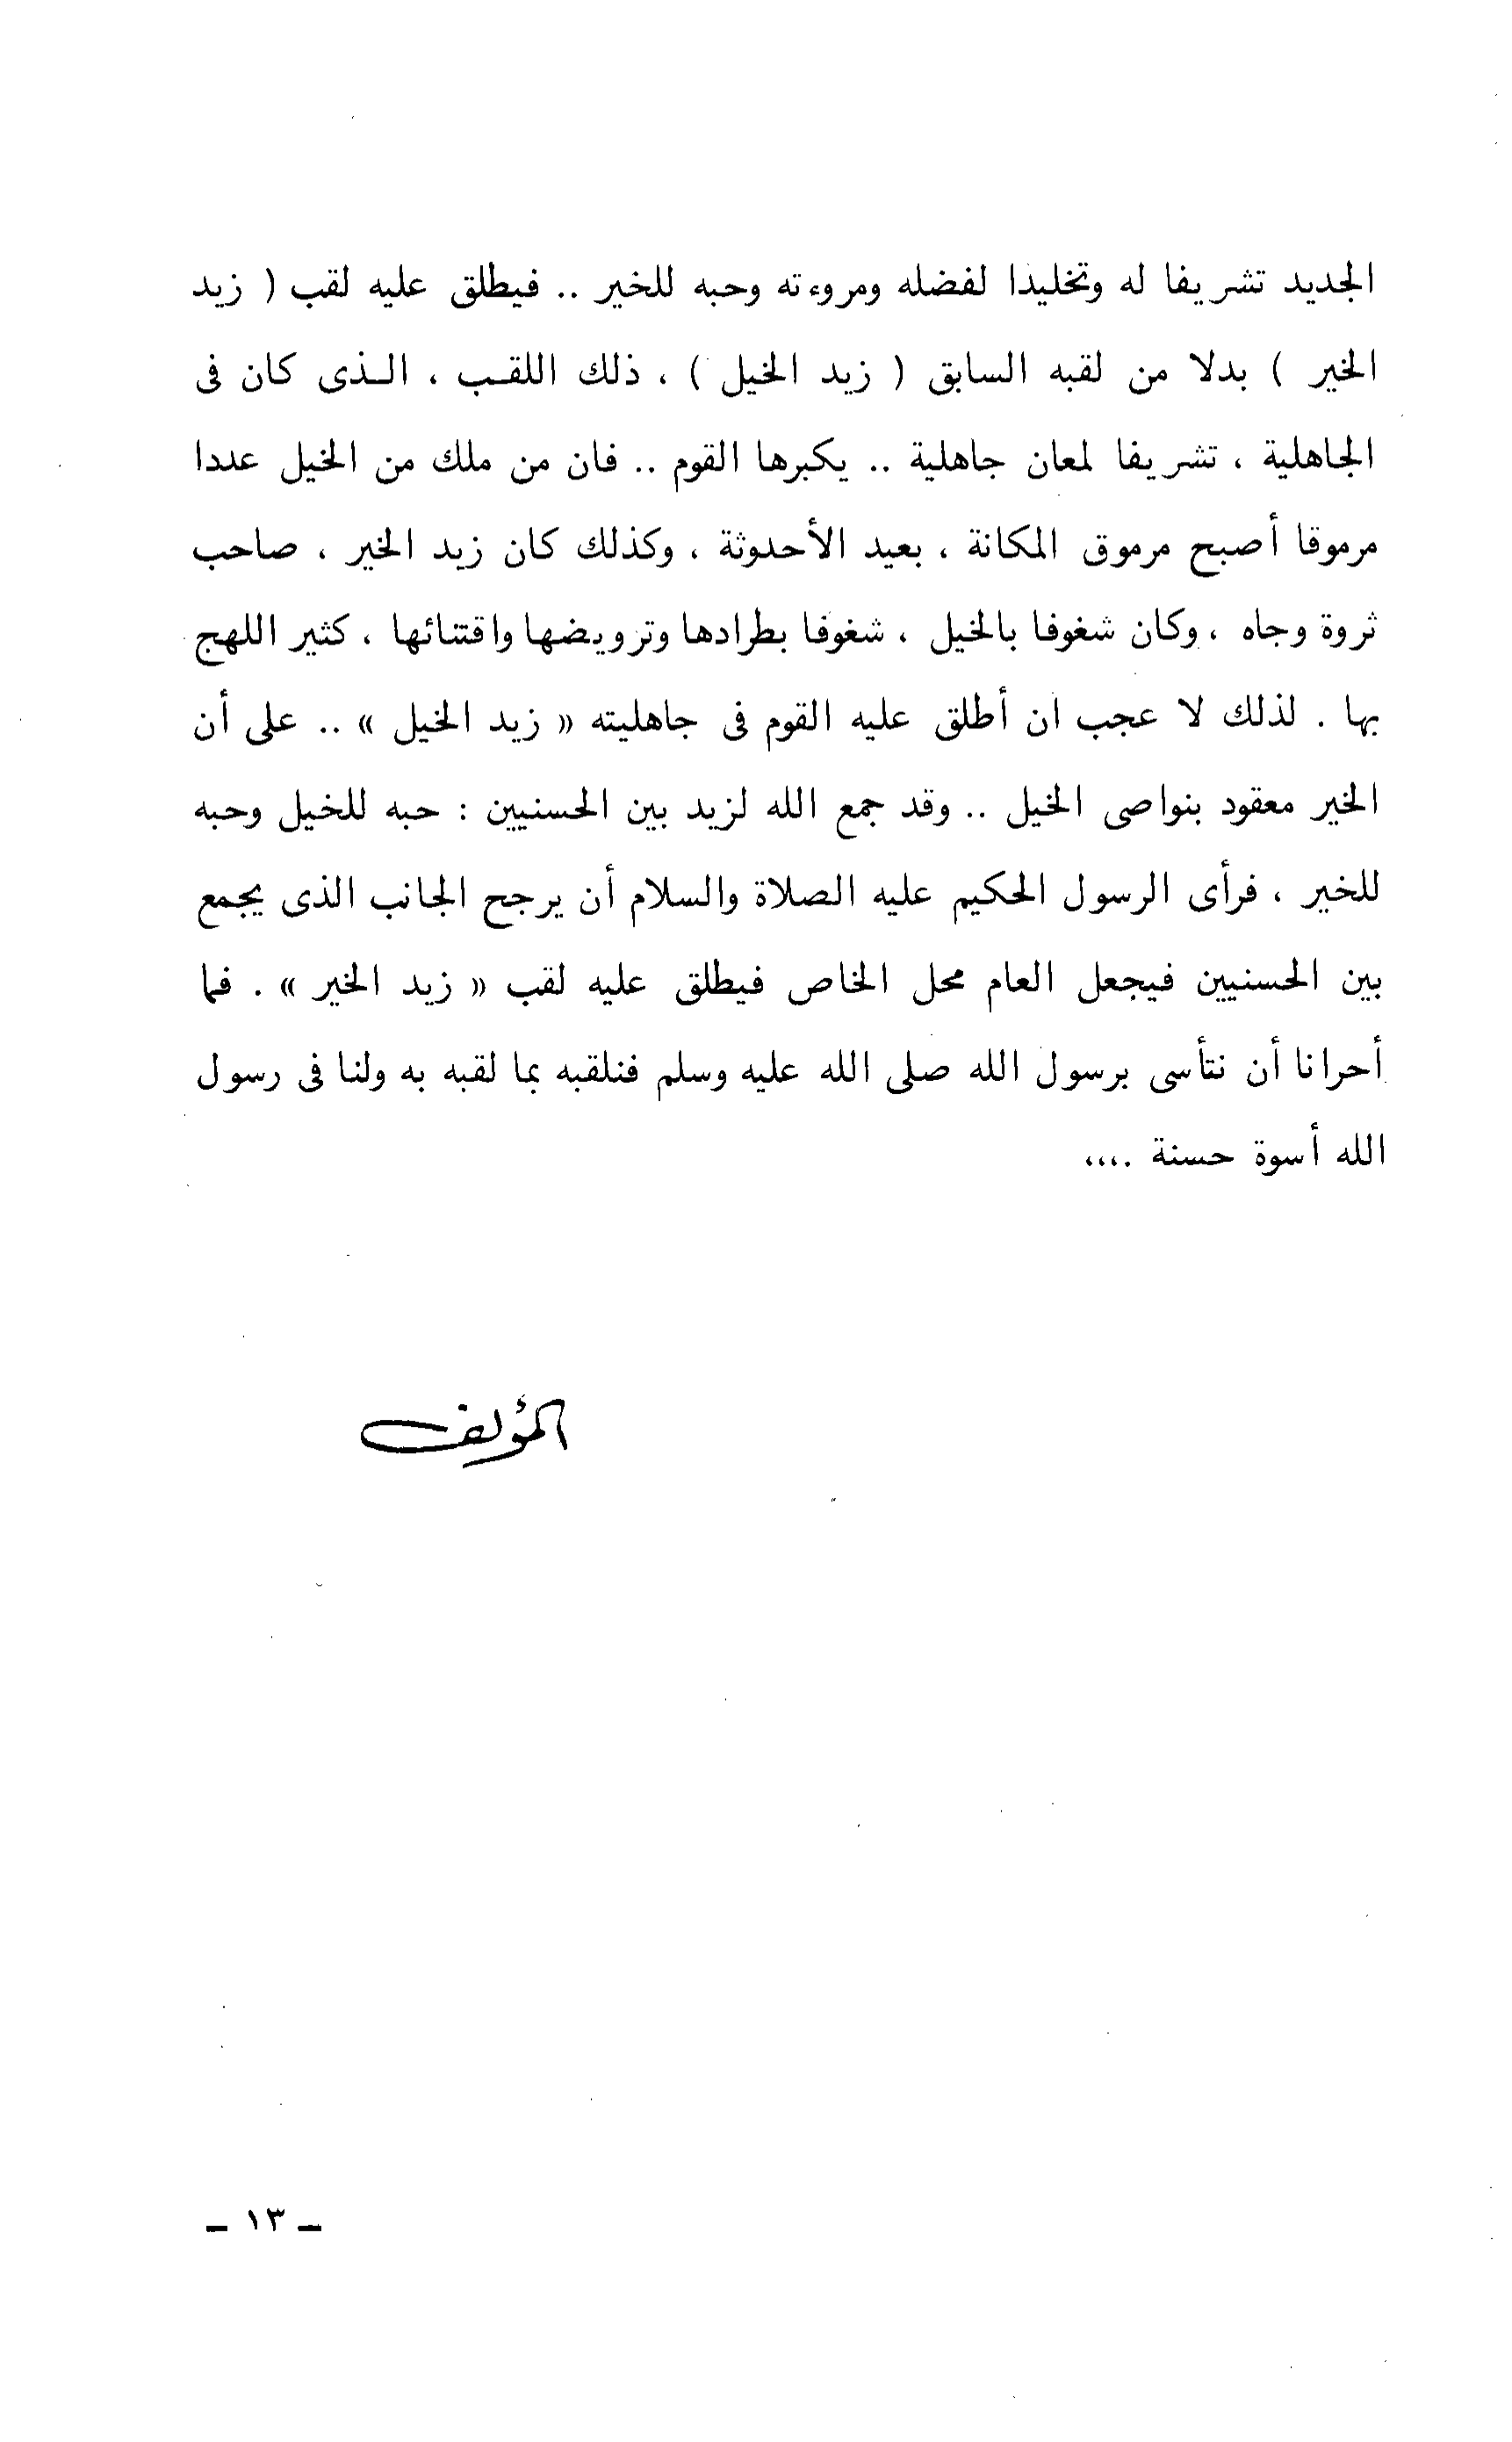 الجديد تشريفا له وتخليدا لفضله ومروءته وحبه للخير .. فيطلق عليه لقب ( زيد
الخير ) بدلا من لقبه السابق ( زيد الخيل ) ، ذلك اللقب ، الذى كان فى
الجاهلية ، تشريفا لمعان جاهلية .. يكبرها القوم .. فان من ملك من الخيل عددا
مرموقا أصبح مرموق المكانة ، بعيد الأحدوثة ، وكذلك كان زيد الخير ، صاحب
ثروة وجاه ، وكان شغوفا بالخيل ، شغوفا بطرادها وترويضها واقتنائها ، كثير اللهج
بها . لذلك لا عجب ان أطلق عليه القوم فى جاهليته « زيد الخيل » .. على أن
الخير معقود بنواصى الخيل .. وقد جمع الله لزيد بين الحسنيين : حبه للخيل وحبه
للخير ، فرأى الرسول الحكيم عليه الصلاة والسلام أن يرجح الجانب الذى يجمع
بين الحسنيين فيجعل العام محل الخاص فيطلق عليه لقب « زيد الخير » . فما
أحرانا أن نتأسى برسول الله صلى الله عليه وسلم فنلقبه بما لقبه به ولنا فى رسول
الله أسوة حسنة ....
المؤلف
ـ ١٣ ـ